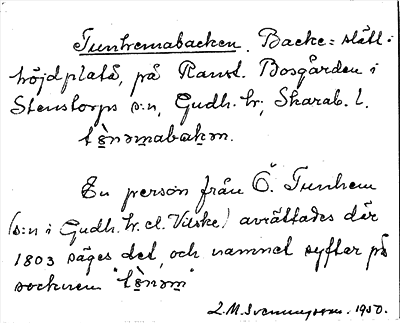 Tunhemabacken. Backe = slätt =
höjdplatå, på Ranst. Bosgården i
Stenstorps s:n, Gudh. hr, Skarab. l.
tè̱nəmabakən.
En person från Ö. Tunhem
(s:n i Gudh. hr. el. Vilske) avrättades där
1803 säges det, och namnet syftar på
socknen "tè̱nəm"
L.M. Svenungsson. 1950.